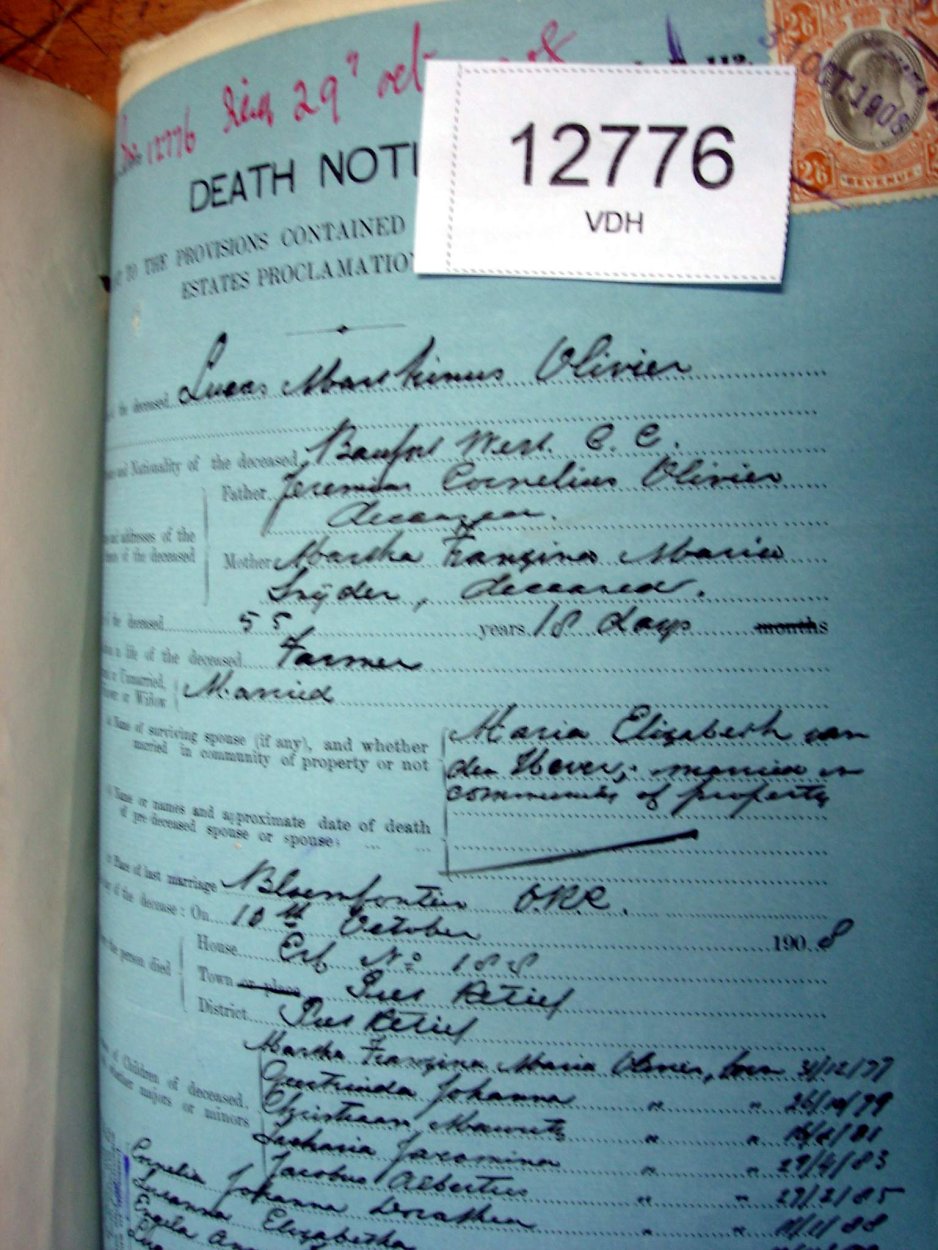 12776 29" Oct
12776
VDH
OCT. 1908
2/6
REVENUE
DEATH NOTI
TO THE PROVISIONS CONTAINED
ESTATES PROCLAMATIO
the deceased Lucas Marthinus Olivier
and Nationality of the deceased Baufort West. C. C.
Father Jeremias Cornelius Olivier
and addresses of the
of the deceased
Mother Martha Franzina Maria
Snÿder, deceased.
the deceased 55 years 18 days months
in life of the deceased Farmer
or Unmarried,
or Widow Married
Name of surviving spouse (if any), and whether
married in community of property or not
Maria Elizabeth van
den Hever, married in
community of property
Name or names and approximate date of death
of pre-deceased spouse or spouses
Place of last marriage Bloemfontein O.R.C.
of the decease: On 10th October 1908
the person died
House Erf No 188
Town or place Piet Retief
District Piet Retief
of Children of deceased,
whether majors or minors
Martha Franzina Maria Olivier, born 31/12/77
Johanna " " 26/10/79
Christiaan Mauritz " "
Jacomina " " 29/4/83
Jacobus Albertus " " 27/2/85
Cornelia Johanna Dorathea " " 11/1/88
Susanna Elizabetha